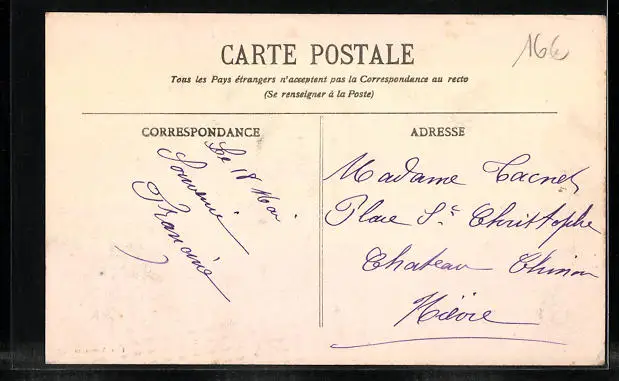 CARTE POSTALE
Tous les Pays étrangers n'acceptent pas la Correspondance au recto
(Se renseigner à la Poste)
166
CORRESPONDANCE
Le 18 Mai
Souvenir
Francine
ADRESSE
Madame Cacnet
Place St Christophe
Chateau Chinon
Nièvre